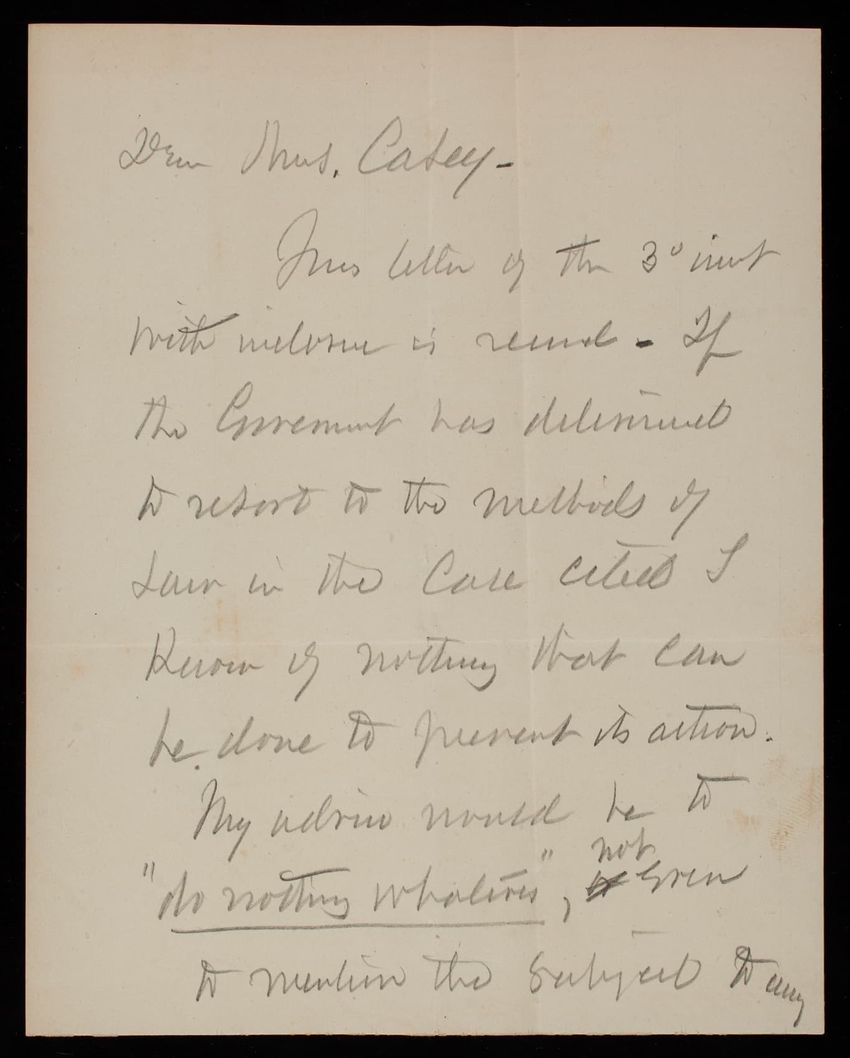 Dear Mrs. Casey -
Your letter of the 3° inst
with inclosure is received - If
the Government has determined
to resort to the methods of
Law in the Case cited I
Know of nothing that can
be done to prevent its action.
My advice would be to
"do nothing whatever", not even
to mention the subject to any